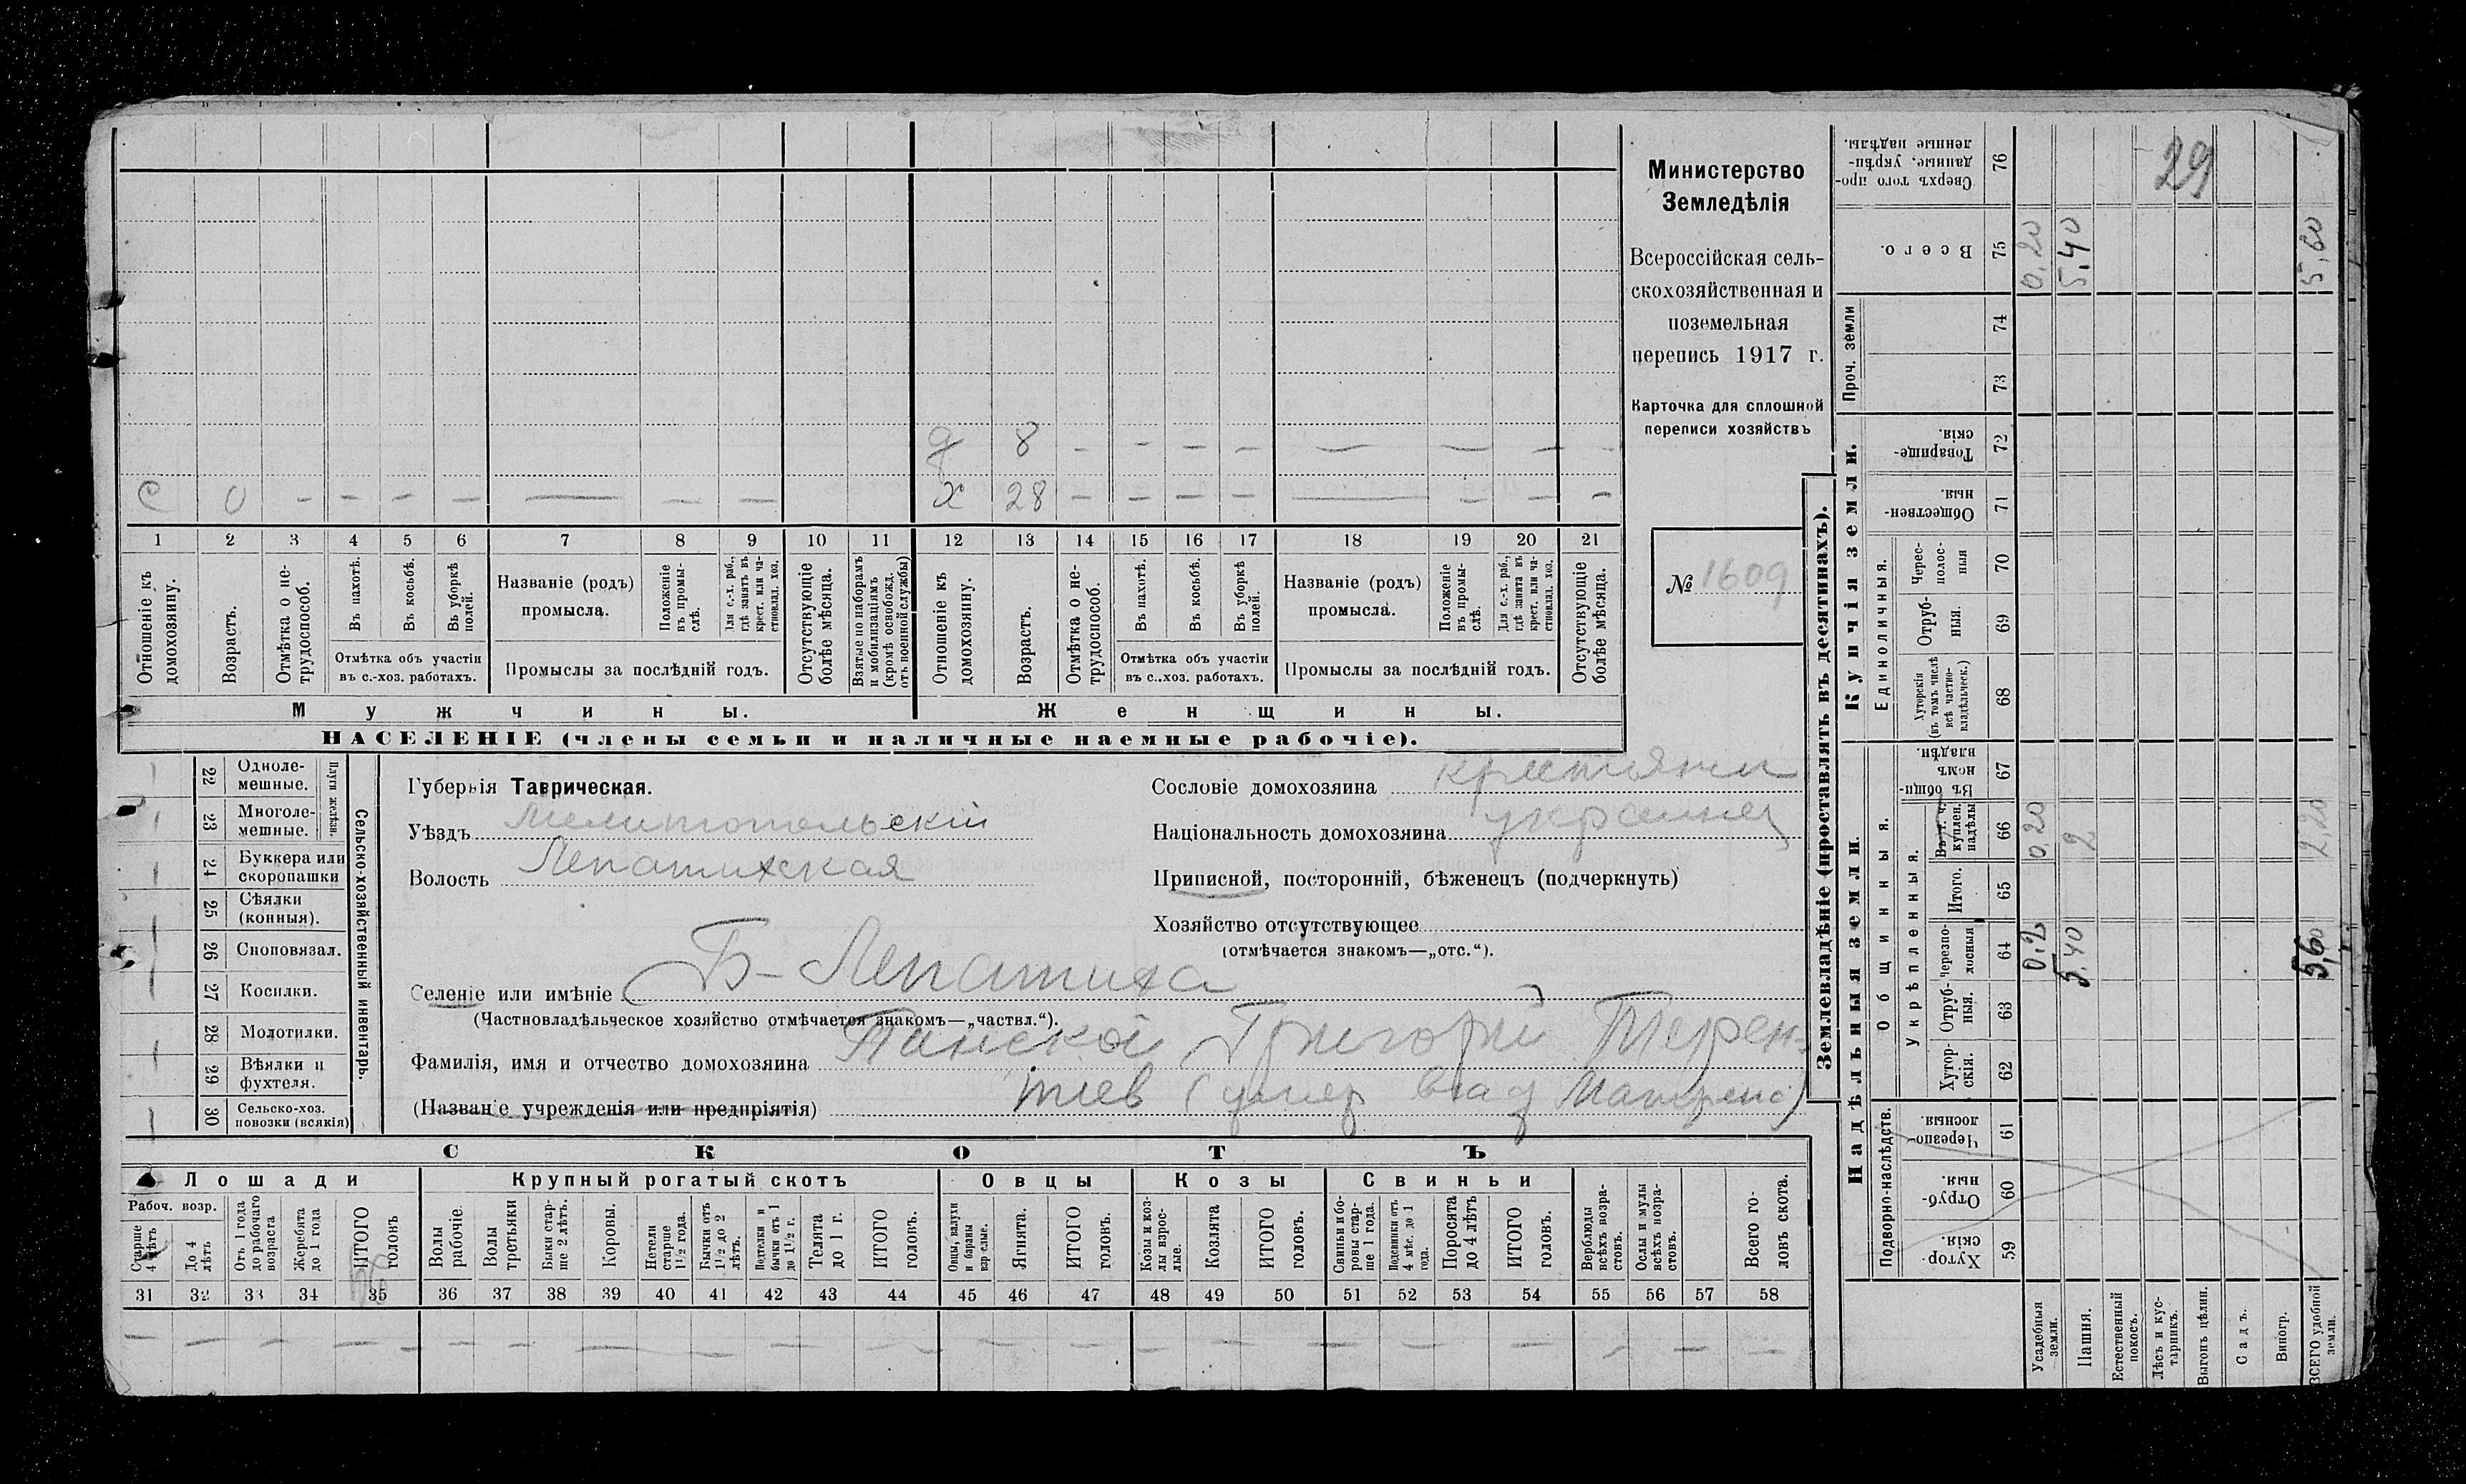 Министерство
Земледѣлія
Всероссійская сель-
скохозяйственная и
поземельная
перепись 1917 г.
Карточка для сплошной
переписи хозяйствъ
№ 1609
д 8 - - - - — — — -
с 0 - - - - — — —
х 28 - - - - — - - -
1 2 3 4 5 6 7 8 9 10 11 12 13 14 15 16 17 18 19 20 21
Отношеніе къ домохозяину.
Возрастъ.
Отмѣтка о не-трудоспособ.
Въ пахотѣ.
Въ косьбѣ.
Въ уборкѣ полей.
Отмѣтка объ участіи
въ с.-хоз. работахъ.
Названіе (родъ)
промысла.
Положеніе въ промы-слѣ.
Для с.-х. раб., гдѣ занятъ въ крест. или ча-стновлад. хоз.
Промыслы за послѣдній годъ.
Отсутствующіе болѣе мѣсяца.
Взятые по наборамъ и мобилизаціямъ (кромѣ освобожд. отъ военной службы)
Отношеніе къ домохозяину.
Возрастъ.
Отмѣтка о не-трудоспособ.
Въ пахотѣ.
Въ косьбѣ.
Въ уборкѣ полей.
Отмѣтка объ участіи
въ с.-хоз. работахъ.
Названіе (родъ)
промысла.
Положеніе въ промы-слѣ.
Для с.-х. раб., гдѣ занята въ крест. или ча-стновлад. хоз.
Промыслы за послѣдній годъ.
Отсутствующіе болѣе мѣсяца.
Мужчины. Женщины.
НАСЕЛЕНІЕ (члены семьи и наличные наемные рабочіе).
Сельско-хозяйственный инвентарь.
Плуги желѣзн.
22 Одноле-мешные.
23 Многоле-мешные.
24 Буккера или скоропашки
25 Сѣялки (конныя).
26 Сноповязал.
27 Косилки.
28 Молотилки.
29 Вѣялки и фухтеля.
30 Сельско-хоз. повозки (всякія)
Губернія Таврическая.
Уѣздъ Мелитопольскій
Волость Лепатихская
Селеніе или имѣніе Б-Лепатиха
(Частновладѣльческое хозяйство отмѣчается знакомъ—„частвл.“).
Фамилія, имя и отчество домохозяина Панской Григорій Терен-
тіев (умер влад Матрена)
(Названіе учрежденія или предпріятія)
Сословіе домохозяина крестянин
Національность домохозяина украинец
Приписной, посторонній, бѣженецъ (подчеркнуть)
Хозяйство отсутствующее
(отмѣчается знакомъ—„отс.“).
СКОТЪ
Лошади Крупный рогатый скотъ Овцы Козы Свиньи
Рабоч. возр.
Старше 4 лѣтъ
До 4 лѣтъ
Отъ 1 года до рабочаго возраста
Жеребята до 1 года
ИТОГО головъ
Волы рабочіе.
Волы третьяки
Быки стар-ше 2 лѣтъ.
Коровы.
Нетели старше 1½ года.
Бычки отъ 1½ до 2 лѣтъ.
Подтелки и бычки отъ 1 до 1½ г.
Телята до 1 г.
ИТОГО головъ.
Овцы, валухи и бараны взрослые.
Ягнята.
ИТОГО головъ.
Козы и коз-лы взрос-лые.
Козлята
ИТОГО головъ.
Свиньи и бо-ровы стар-ше 1 года.
Подсвинки отъ 4 мѣс. до 1 года.
Поросята до 4 лѣтъ
ИТОГО головъ.
Верблюды всѣхъ возра-стовъ.
Ослы и мулы всѣхъ возра-стовъ.
Всего го-ловъ скота.
31 32 33 34 35 36 37 38 39 40 41 42 43 44 45 46 47 48 49 50 51 52 53 54 55 56 57 58
Землевладѣніе (проставлять въ десятинахъ).
Надѣльныя земли.
Подворно-наслѣдств.
Хутор-скія. 59
Отруб-ныя. 60
Черезпо-лосныя. 61
Общинныя.
Укрѣпленныя.
Хутор-скія. 62
Отруб-ныя. 63
Черезпо-лосныя 64
Итого. 65
Въ т. ч. куплен. надѣлы 66
Въ общи-номъ владѣн. 67
Купчія земли.
Единоличныя.
Хуторскія (въ томъ числѣ всѣ частно-владѣльческ.) 68
Отруб-ныя. 69
Черес-полос-ныя 70
Обществен-ныя. 71
Товарище-скія. 72
Проч. земли
73 74
Всего. 75
Сверхъ того про-данные, укрѣп-ленные надѣлы. 76
Усадебныя земли. 0.2 0.20 0.20
Пашня. 5.40 2 5.40
Естественный покосъ.
Лѣсъ и кус-тарникъ.
Выгонъ цѣлин.
Садъ.
Виногр.
ВСЕГО удобной земли. 5,60 2,20 5,60
29